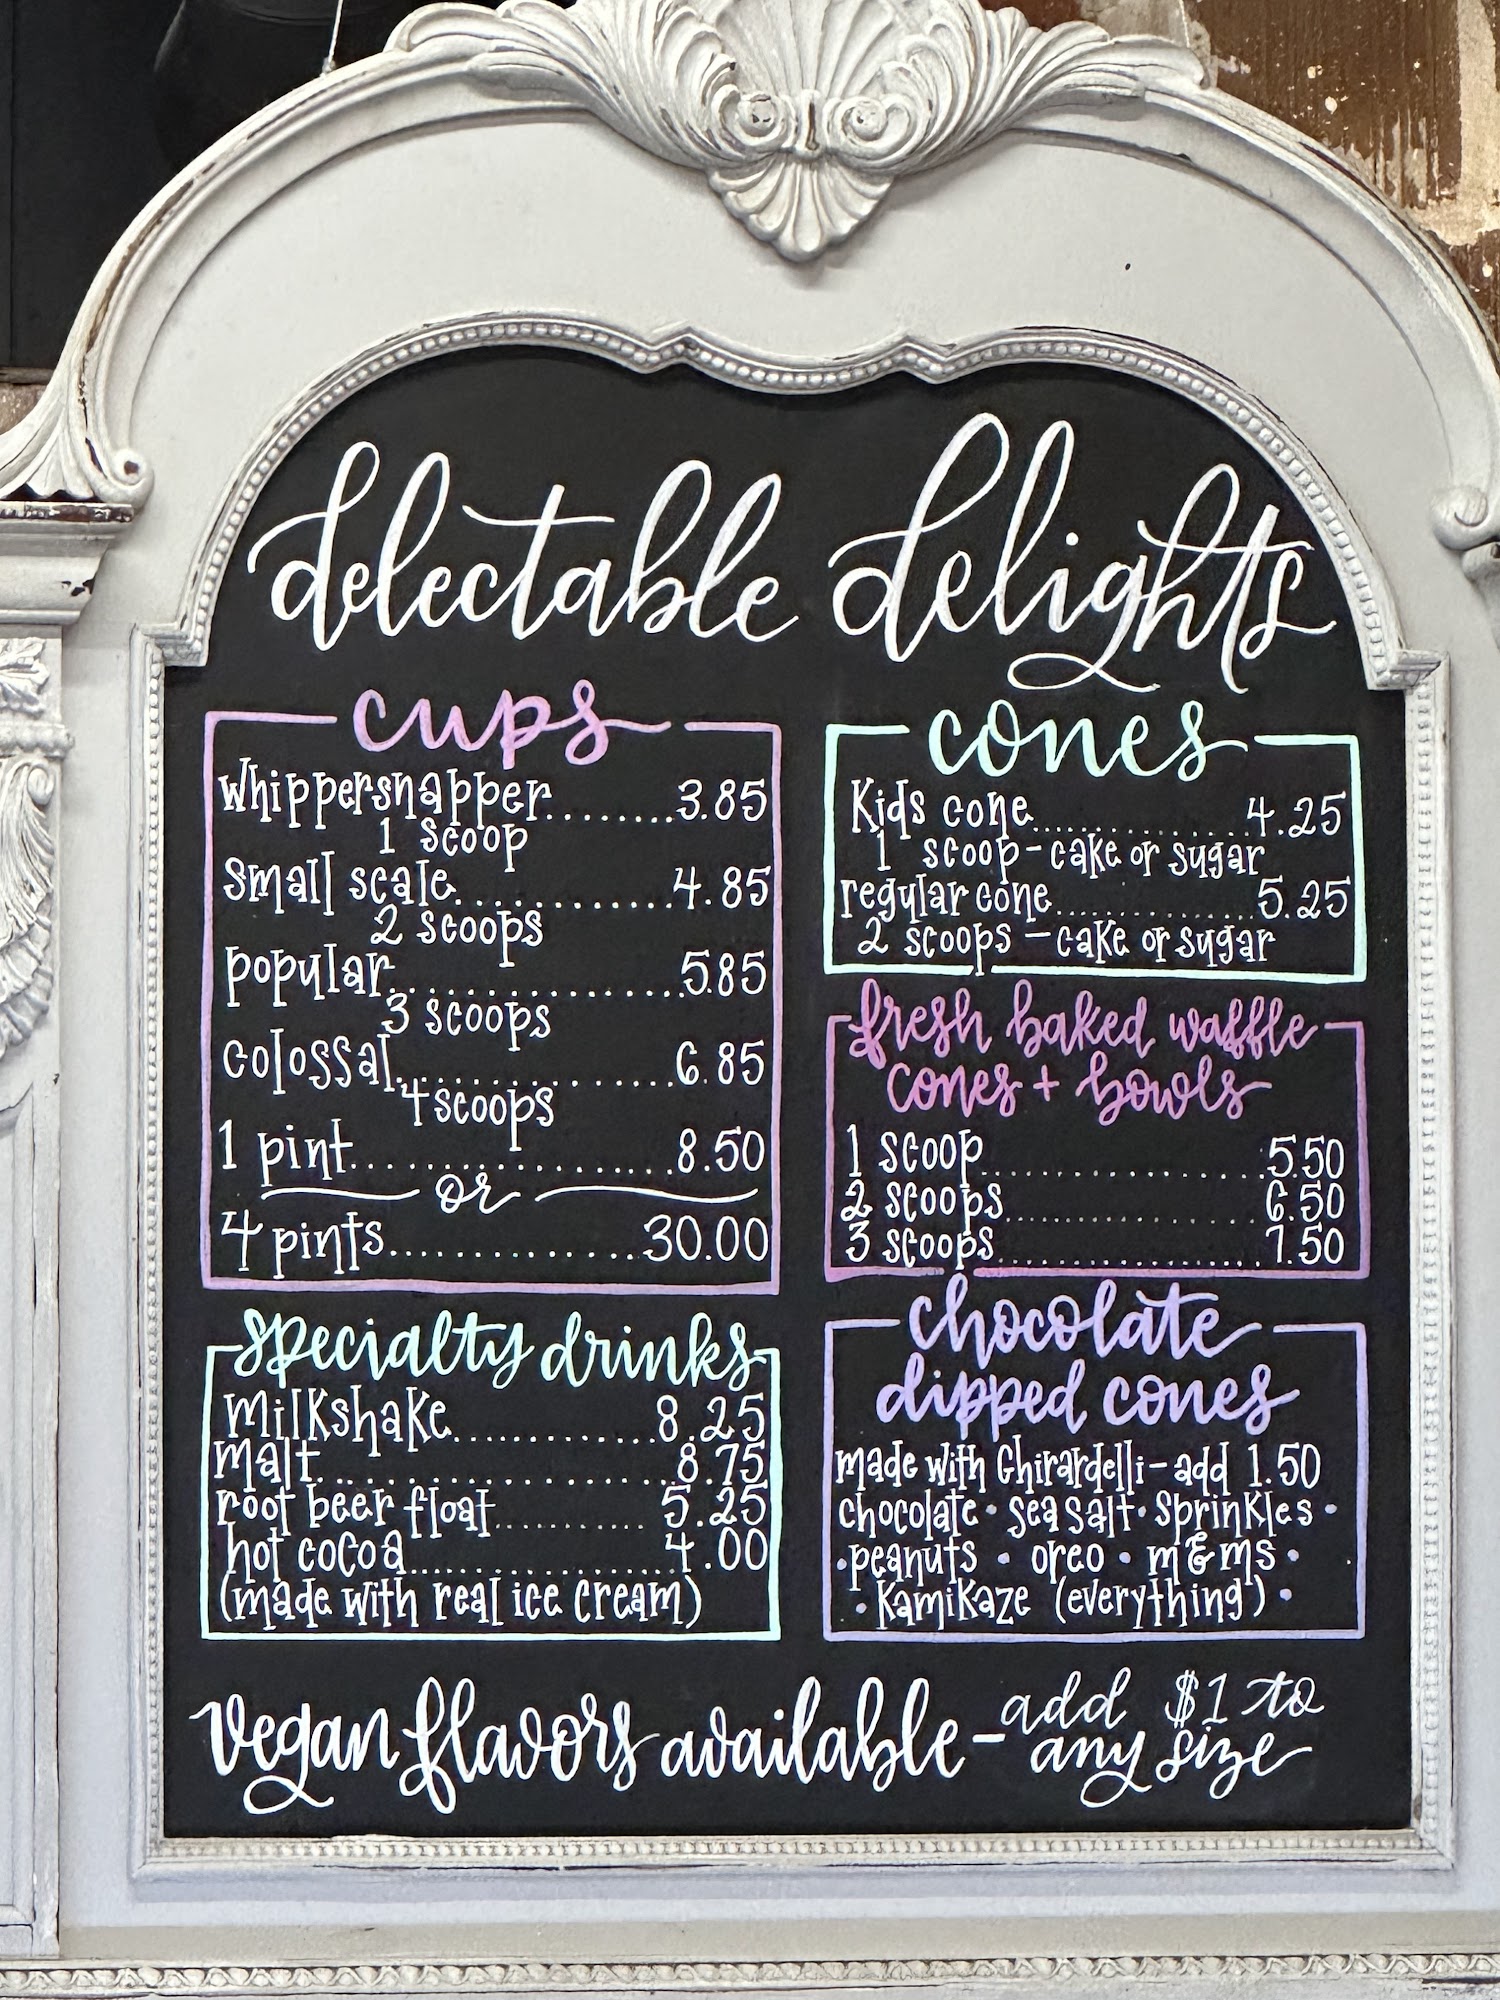 delectable delights
cups
whippersnapper........3.85
1 scoop
small scale............4.85
2 scoops
popular................5.85
3 scoops
colossal................6.85
4 scoops
1 pint..................8.50
or
4 pints..............30.00
specialty drinks
milkshake............8.25
malt....................8.75
root beer float...........5.25
hot cocoa..................4.00
(made with real ice cream)
cones
Kids cone................4.25
1 scoop - cake or sugar
regular cone..............5.25
2 scoops - cake or sugar
fresh baked waffle
cones + bowls
1 scoop..................5.50
2 scoops................6.50
3 scoops................7.50
chocolate
dipped cones
made with Ghirardelli - add 1.50
chocolate • sea salt • sprinkles •
• peanuts • oreo • m&ms •
• Kamikaze (everything) •
vegan flavors available - add $1 to
any size